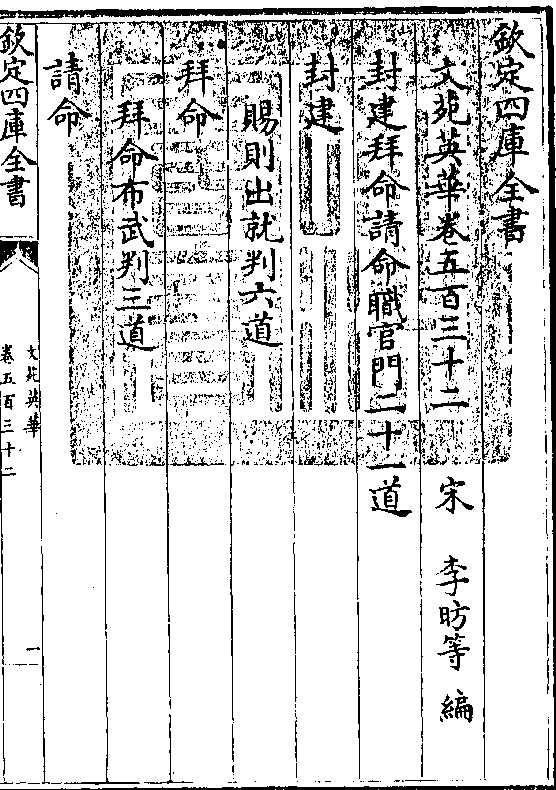 欽定四庫全書
文苑英華卷五百三十二 宋 李昉等 編
封建拜命請命職官門二十一道
封建
賜則出就判六道
拜命
拜命布武判三道
請命
欽定四庫全書
文苑英華
卷五百三十二
一